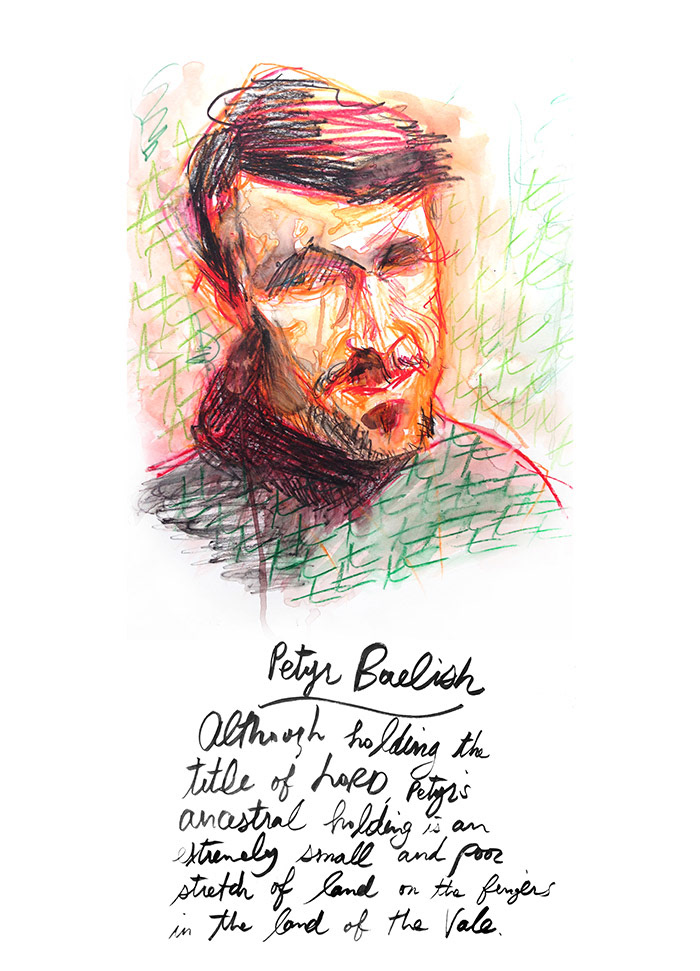 Petyr Baelish
Although holding the
title of LORD, Petyr's
ancestral holding is an
extremely small and poor
stretch of land on the fingers
in the land of the Vale.